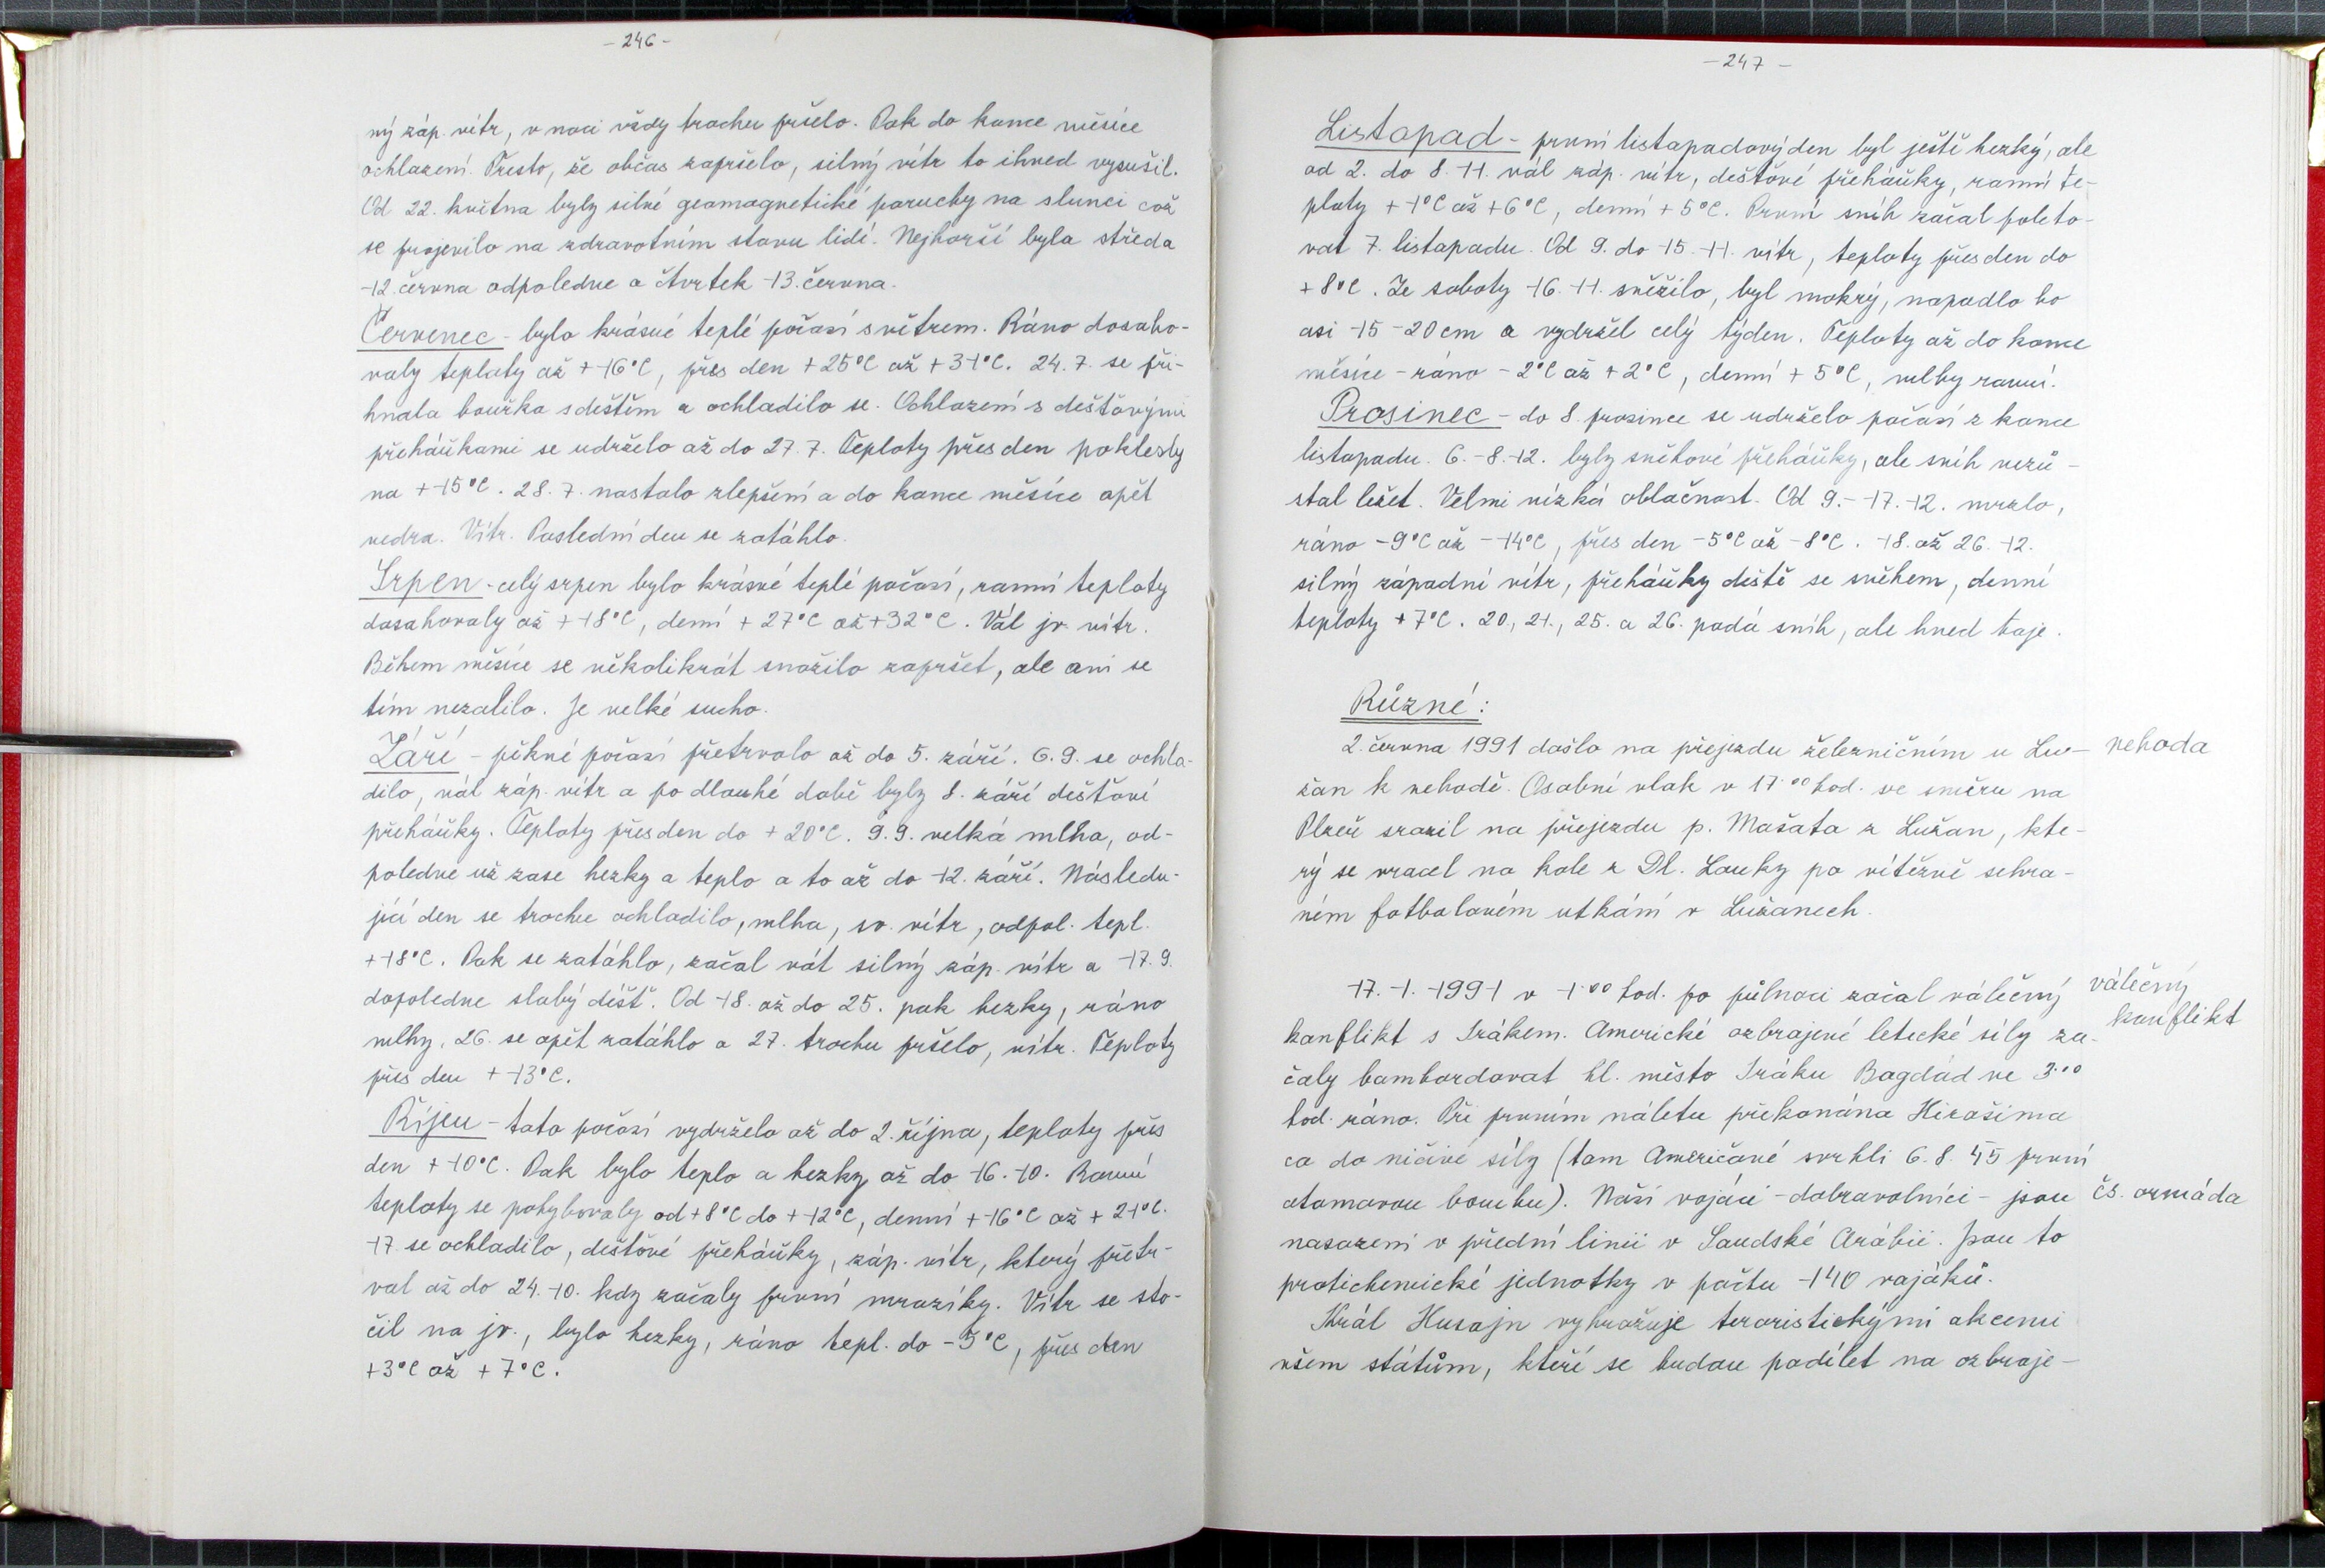 - 246 -
ný záp. vítr, v noci vždy trochu pršelo. Pak do konce měsíce
ochlazení. Přesto, že občas zapršelo, silný vítr to ihned vysušil.
Od 22. května byly silné geomagnetické poruchy na slunci což
se projevilo na zdravotním stavu lidí. Nejhorší byla středa
12. června odpoledne a čtvrtek 13. června.
Červenec - bylo krásné teplé počasí s větrem. Ráno dosaho-
valy teploty až +16°C, přes den +25°C až +31°C. 24. 7. se při-
hnala bouřka s deštěm a ochladilo se. Ochlazení s dešťovými
přeháňkami se udrželo až do 27. 7. Teploty přes den poklesly
na +15°C. 28. 7. nastalo zlepšení a do konce měsíce opět
vedra. Vítr. Poslední den se zatáhlo.
Srpen - celý srpen bylo krásné teplé počasí, ranní teploty
dosahovaly až +18°C, dení +27°C až +32°C. Vál jv. vítr.
Během měsíce se několikrát snažilo zapršet, ale ani se
tím nezalilo. Je velké sucho.
Září - pěkné počasí přetrvalo až do 5. září. 6. 9. se ochla-
dilo, vál záp. vítr a po dlouhé době byly 8. září dešťové
přeháňky. Teploty přes den do +20°C. 9. 9. velká mlha, od-
poledne už zase hezky a teplo a to až do 12. září. Následu-
jící den se trochu ochladilo, mlha, sv. vítr, odpol. tepl.
+18°C. Pak se zatáhlo, začal vát silný záp. vítr a 17. 9.
dopoledne slabý déšť. Od 18. až do 25. pak hezky, ráno
mlhy, 26. se opět zatáhlo a 27. trochu pršelo, vítr. Teploty
přes den +13°C.
Říjen - toto počasí vydrželo až do 2. října, teploty přes
den +10°C. Pak bylo teplo a hezky až do 16. 10. Ranní
teploty se pohybovaly od +8°C do +12°C, denní +16°C až +21°C.
17. se ochladilo, dešťové přeháňky, záp. vítr, který přetr-
val až do 24. 10. kdy začaly první mrazíky. Vítr se sto-
čil na jv., bylo hezky, ráno tepl. do -5°C, přes den
+3°C až +7°C.
- 247 -
Listopad - první listopadový den byl ještě hezký, ale
od 2. do 8. 11. vál záp. vítr, dešťové přeháňky, ranní te-
ploty +1°C až +6°C, denní +5°C. První sníh začal poleto-
vat 7. listopadu. Od 9. do 15. 11. vítr, teploty přes den do
+8°C. Ze soboty 16. 11. sněžilo, byl mokrý, napadlo ho
asi 15-20 cm a vydržel celý týden. Teploty až do konce
měsíce - ráno -2°C až +2°C, denní +5°C, mlhy ranní.
Prosinec - do 8. prosince se udrželo počasí z konce
listopadu. 6.-8. 12. byly sněhové přeháňky, ale sníh nezů-
stal ležet. Velmi nízká oblačnost. Od 9.-17. 12. mrzlo,
ráno -9°C až -14°C, přes den -5°C až -8°C. 18. až 26. 12.
silný západní vítr, přeháňky deště se sněhem, denní
teploty +7°C. 20., 21., 25. a 26. padá sníh, ale hned taje.
Různé:
2. června 1991 došlo na přejezdu železničním u Lu-
žan k nehodě. Osobní vlak v 17.00 hod. ve směru na
Plzeň srazil na přejezdu p. Mašata z Lužan, kte-
rý se vracel na kole z Dl. Louky po vítězně sehra-
ném fotbalovém utkání v Lužanech.
nehoda
17. 1. 1991 v 1.00 hod. po půlnoci začal válečný
konflikt s Irákem. Americké ozbrojené letecké síly za-
čaly bombardovat hl. město Iráku Bagdád ve 3.00
hod. ráno. Při prvním náletu překonána Hirošima
co do ničivé síly (tam Američané svrhli 6. 8. 45 první
atomovou bombu). Naši vojáci - dobrovolníci - jsou
nasazeni v přední linii v Saudské Arábii. Jsou to
protichemické jednotky v počtu 140 vojáků.
Král Husajn vyhrožuje teroristickými akcemi
všem státům, kteří se budou podílet na ozbroje-
válečný
konflikt
čs. armáda